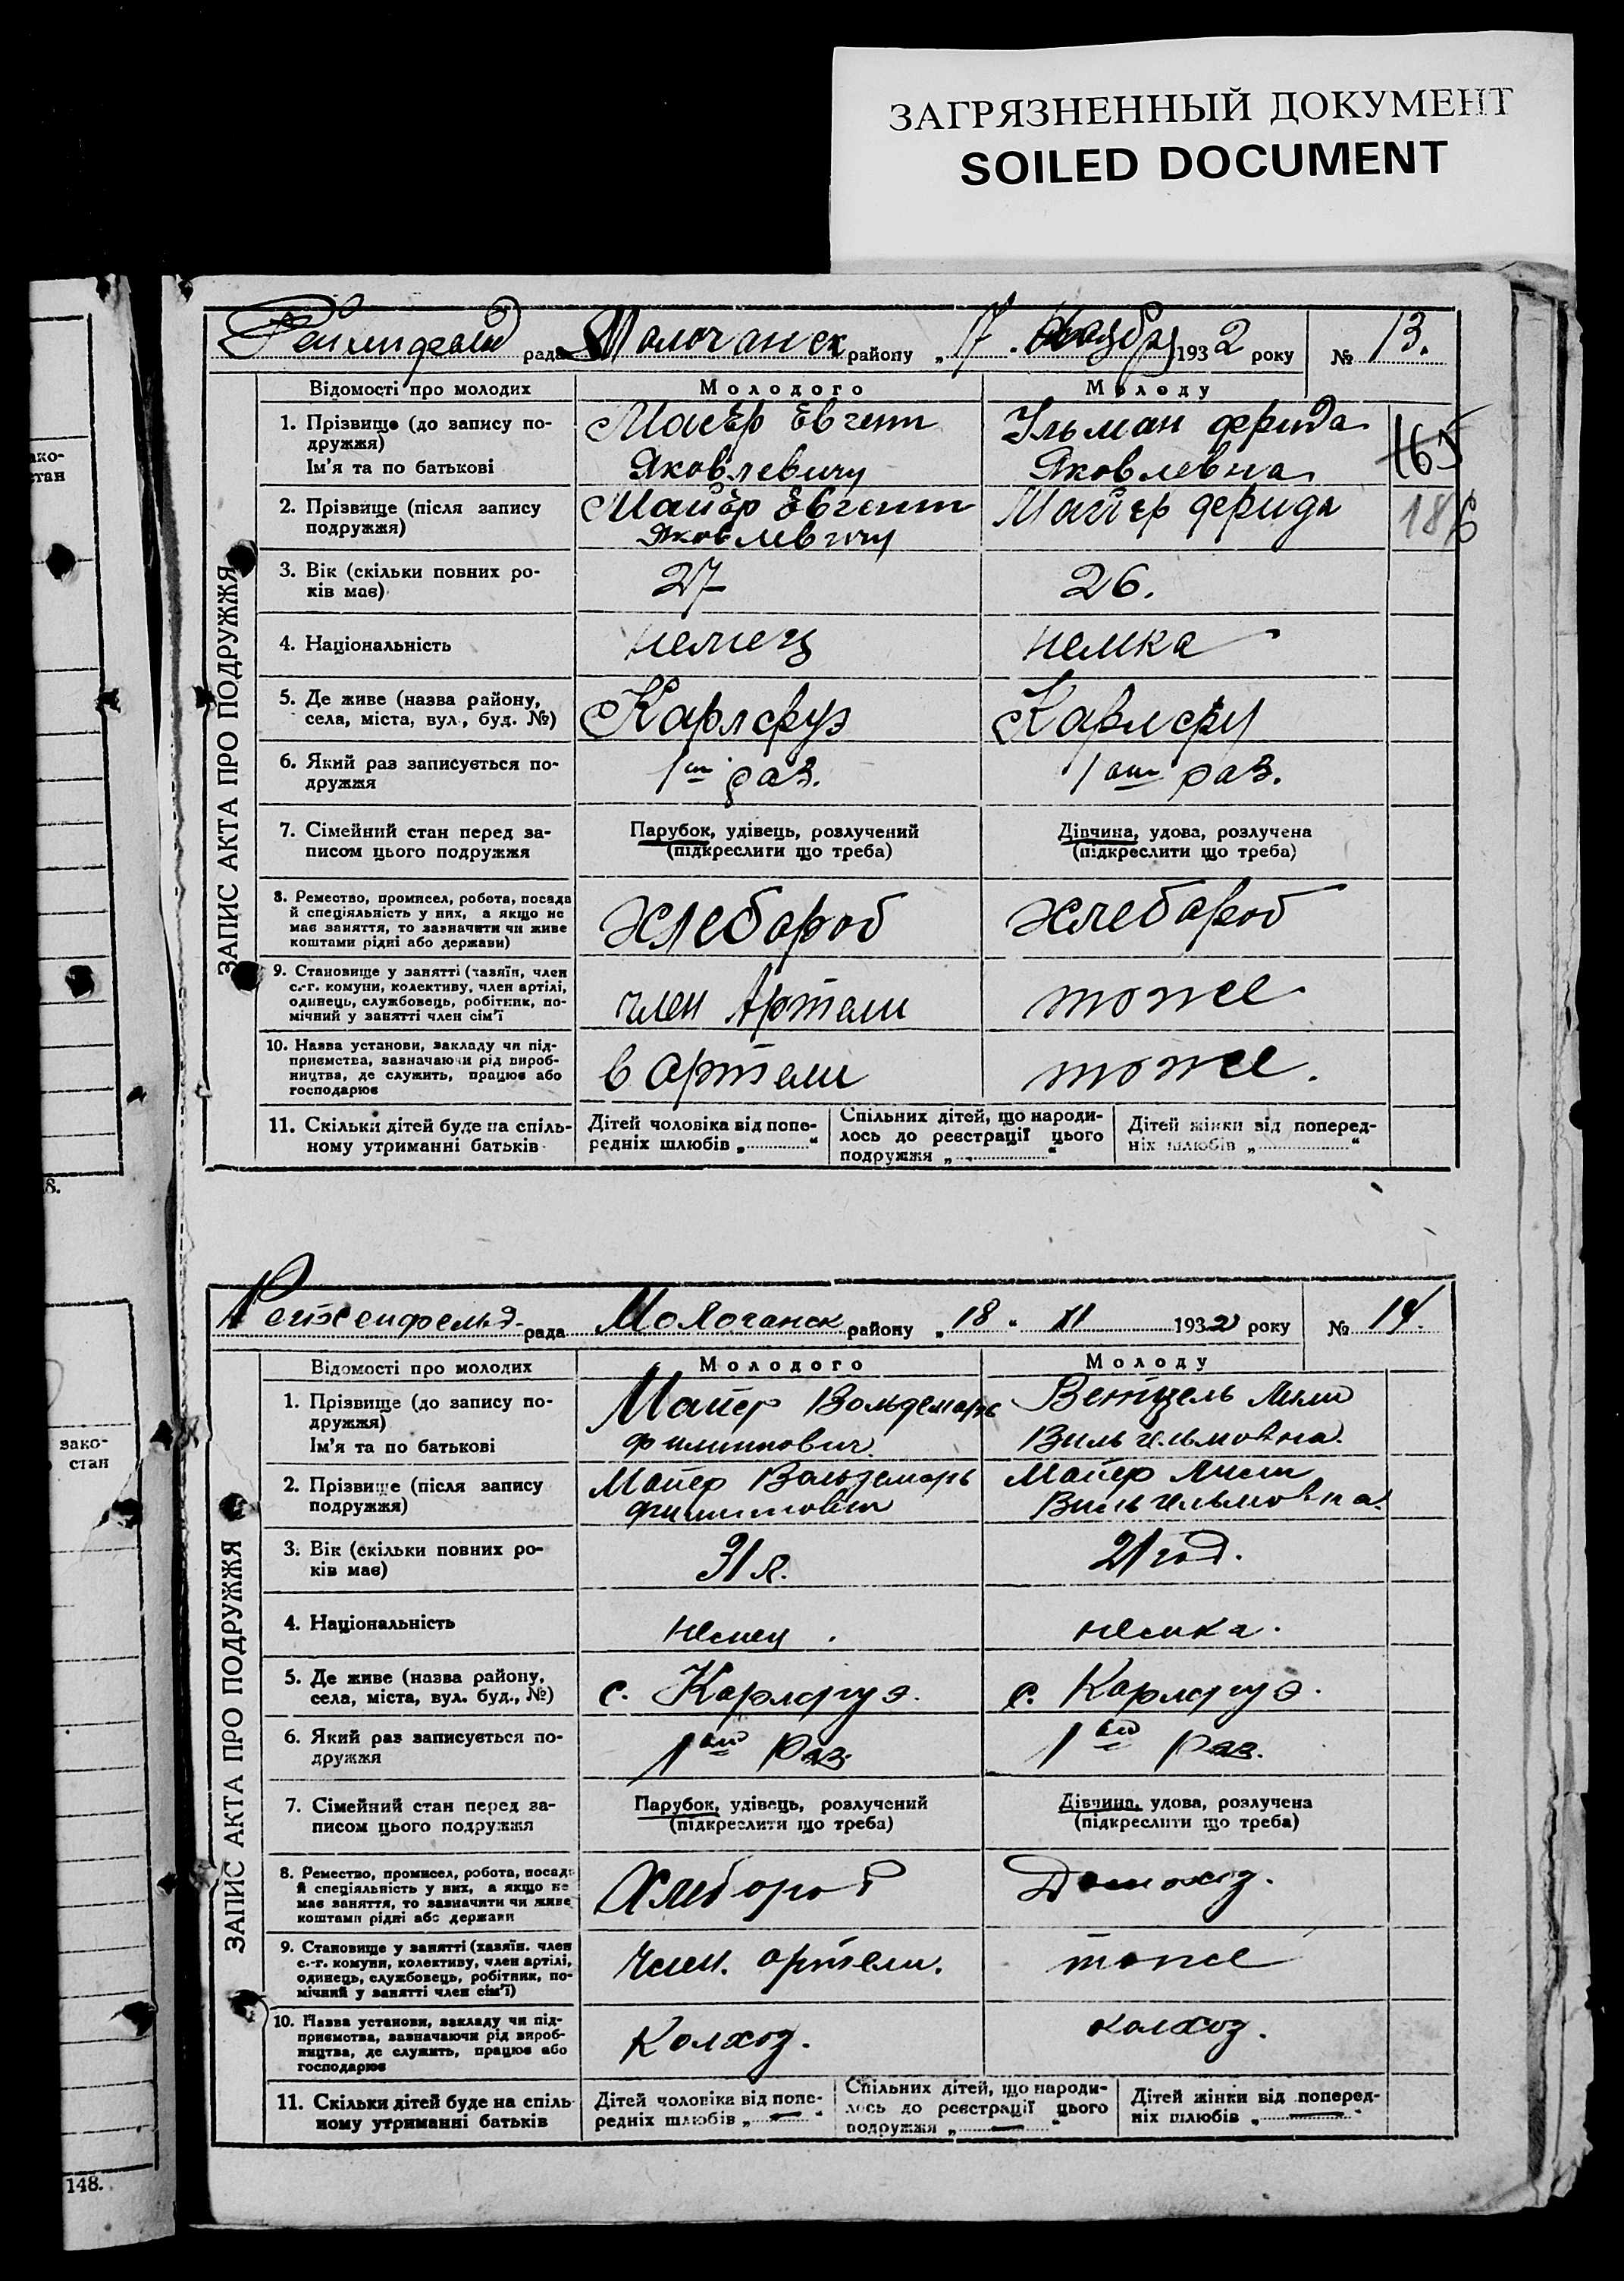 ЗАГРЯЗНЕННЫЙ ДОКУМЕНТ
SOILED DOCUMENT
ако-
стан
8.
вако-
стан
148.
рада Молочанск району „17. Ноября 1932 року № 13.
ЗАПИС АКТА ПРО ПОДРУЖЖЯ
Відомості про молодих Молодого Молоду
1. Прізвище (до запису по-
дружжя)
Ім'я та по батькові
Маєр Євгени
Яковлевичу
Ульман Ферида
Яковлевна
165
2. Прізвище (після запису
подружжя)
Майер Євгени
Яковлевичу
Майер Ферида
186
3. Вік (скільки повних ро-
ків має)
27
26.
4. Національність
немец
немка
5. Де живе (назва району,
села, міста, вул., буд. №)
Карлсруэ
Карлсру
6. Який раз записується по-
дружжя
1ый раз.
1ый раз.
7. Сімейний стан перед за-
писом цього подружжя
Парубок, удівець, розлучений
(підкреслити що треба)
Дівчина, удова, розлучена
(підкреслити що треба)
8. Ремество, промисел, робота, посада
й спеціяльність у них, а якщо не
має заняття, то зазначити чи живе
коштами рідні або держави)
хлебороб
хлебороб
9. Становище у занятті (хазяїн, член
с.-г. комуни, колективу, член артілі,
одинець, службовець, робітник, по-
мічний у занятті член сім'ї
член Артели
тоже
10. Назва установи, закладу чи під-
приємства, зазначаючи рід вироб-
ництва, де служить, працює або
господарює
в артели
тоже.
11. Скільки дітей буде на спіль-
ному утриманні батьків
Дітей чоловіка від попе-
редніх шлюбів „ “
Спільних дітей, що народи-
лось до реєстрації цього
подружжя „ “
Дітей жінки від поперед-
ніх шлюбів „ “
Рейхенфельд рада Молочанск району „18“ XI 1932 року № 14.
ЗАПИС АКТА ПРО ПОДРУЖЖЯ
Відомості про молодих Молодого Молоду
1. Прізвище (до запису по-
дружжя)
Ім'я та по батькові
Майер Вольдемарь
Филиппович
Ветцель
Вильгельмовна.
2. Прізвище (після запису
подружжя)
Майер Вальдемарь
Филиппович
Майер
Вильгельмовна.
3. Вік (скільки повних ро-
ків має)
31 л.
21 год.
4. Національність
немец.
немка.
5. Де живе (назва району,
села, міста, вул. буд., №)
с. Карлсруэ.
с. Карлсруэ.
6. Який раз записується по-
дружжя
1ый Раз
1ый Раз.
7. Сімейний стан перед за-
писом цього подружжя
Парубок, удівець, розлучений
(підкреслити що треба)
Дівчина, удова, розлучена
(підкреслити що треба)
8. Ремество, промисел, робота, посада
й спеціяльність у них, а якщо не
має заняття, то зазначити чи живе
коштами рідні або держави
Хлебороб
Домохоз.
9. Становище у занятті (хазяїн. член
с.-г. комуни, колективу, член артілі,
одинець, службовець, робітник, по-
мічний у занятті член сім'ї)
Член. артели.
тоже
10. Назва установи, закладу чи під-
приємства, зазначаючи рід вироб-
ництва, де служить, працює або
господарює
Колхоз.
колхоз.
11. Скільки дітей буде на спіль-
ному утриманні батьків
Дітей чоловіка від попе-
редніх шлюбів „ — “
Спільних дітей, що народи-
лось до реєстрації цього
подружжя „ — “
Дітей жінки від поперед-
ніх шлюбів „ — “